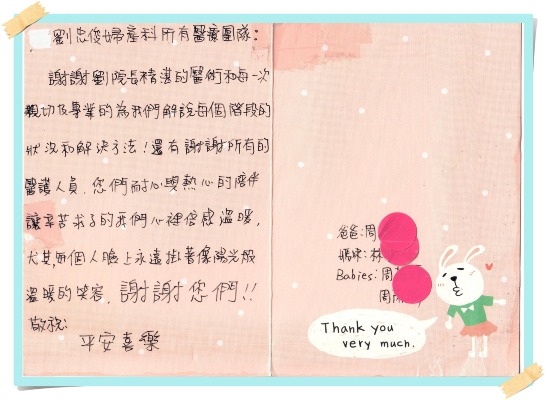 劉忠俊婦產科所有醫療團隊：
謝謝劉院長精湛的醫術和每一次
親切及專業的為我們解說每個階段的
狀況和解決方法！還有謝謝所有的
醫護人員，您們耐心與熱心的陪伴
讓辛苦求子的我們心裡倍感溫暖，
尤其每個人臉上永遠掛著像陽光般
溫暖的笑容，謝謝您們！！
敬祝：
平安喜樂
爸爸：周
媽咪：林
Babies：周
周
Thank you
very much.